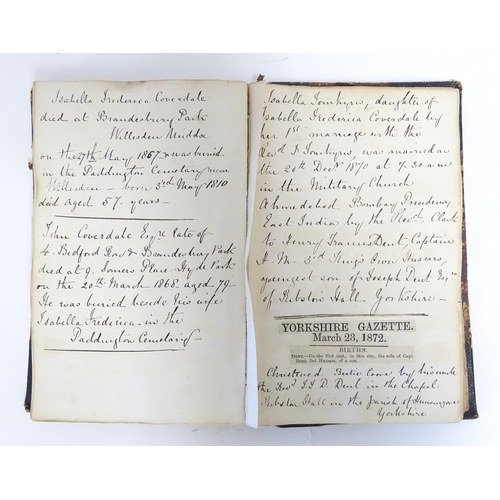 Isabella Frederica Coverdale
died at Brandesbury Park
Willesden Middx
on the 27th May 1867 & was buried
in the Paddington Cemetary near
Willesden – born 3rd May 1810
died aged 57. years –
John Coverdale Esqre late of
4. Bedford Row & Brandesbury Park
died at 9. Somers Place Hyde Park
on the 20th March 1868. aged 79.
He was buried beside his wife
Isabella Frederica in the
Paddington Cemetary –
Isabella Tomkyns, daughter of
Isabella Frederica Coverdale by
her 1st marriage with the
Revd J. Tomkyns, was married on
the 20th Decr 1870 at 7.30 a.m
in the Military Church
Ahmedabad. Bombay Presidency
East India by the Revd. Clark
to Henry Francis Dent, Captain
H. M. 3rd King's Own Hussars,
youngest son of Joseph Dent Esqre
of Ribston Hall, Yorkshire –
YORKSHIRE GAZETTE.
March 23, 1872.
BIRTHS.
DENT.—On the 21st inst., in this city, the wife of Capt.
Dent, 3rd Hussars, of a son.
Christened by his uncle
the Revd J. J. D. Dent in the Chapel
Ribston Hall in the parish of Hunsingore
Yorkshire